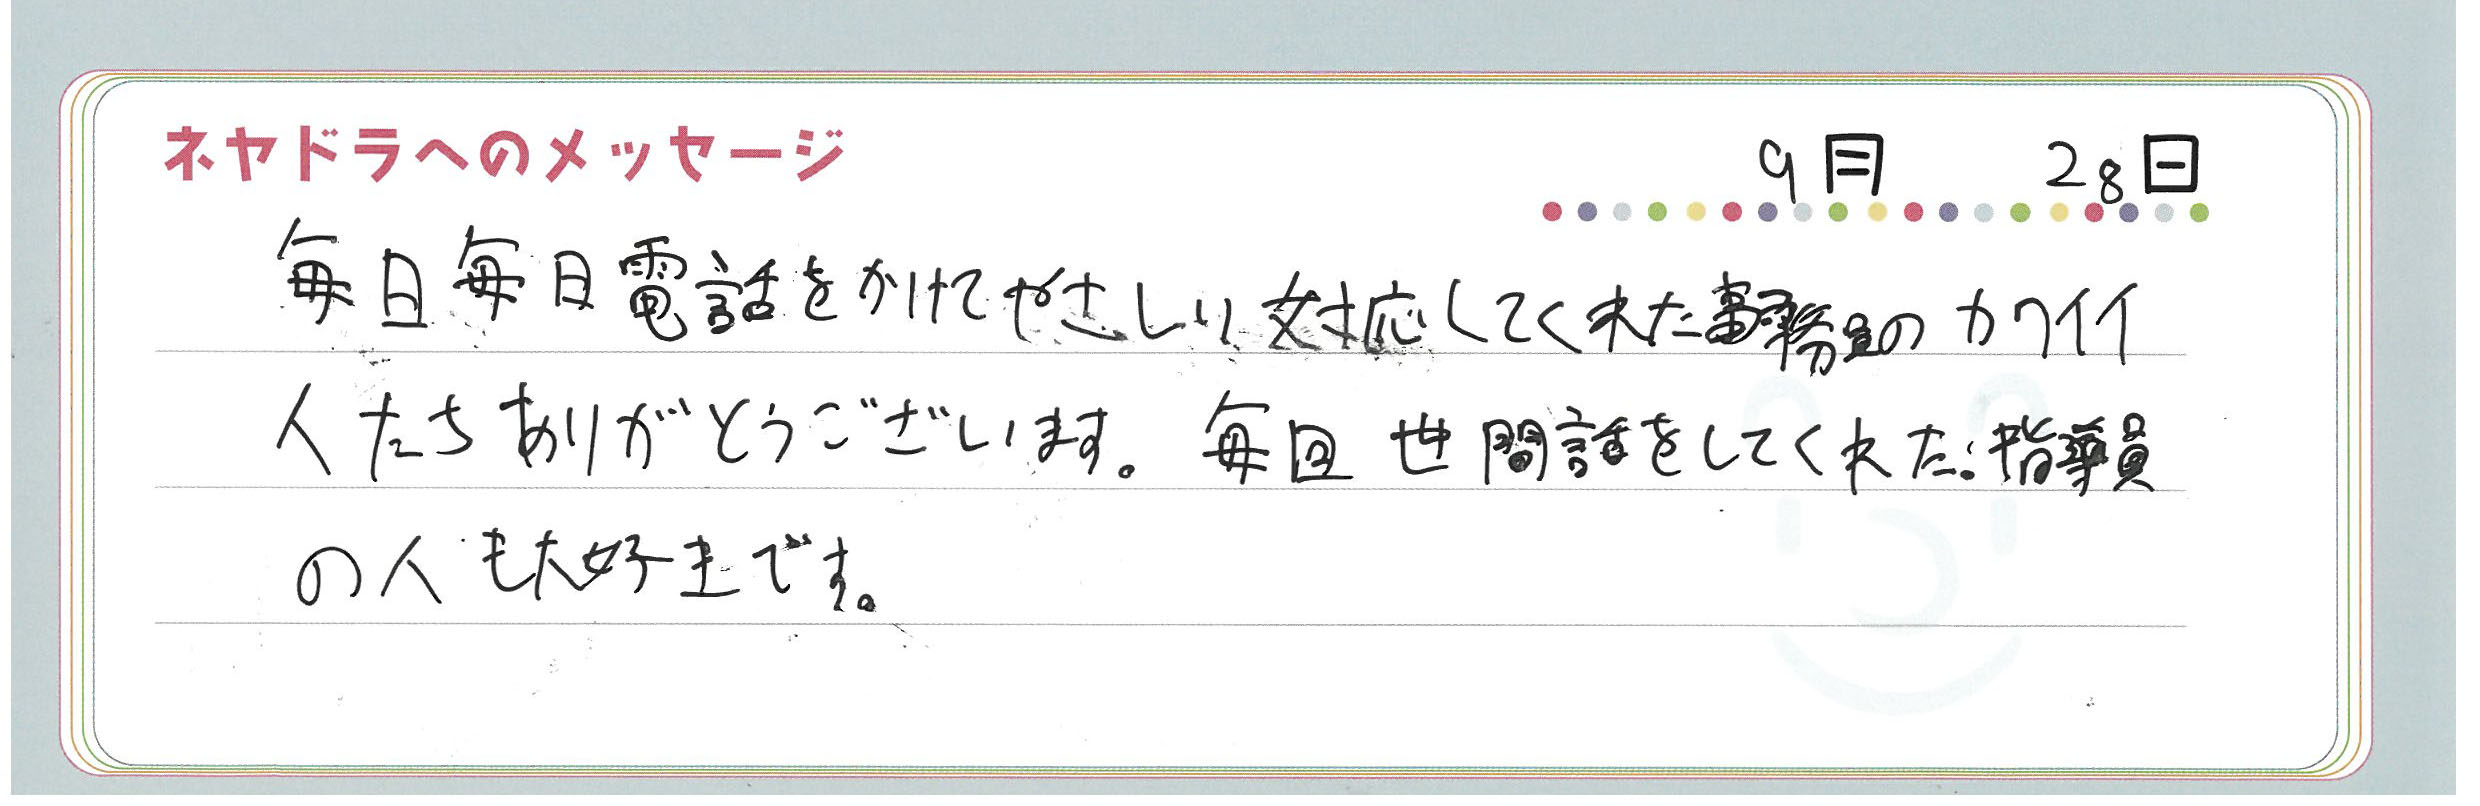 ネヤドラへのメッセージ
9月 28日
毎日毎日電話をかけてやさしい対応してくれた事務員のカワイイ
人たちありがとうございます。毎回世間話をしてくれた指導員
の人も大好きです。